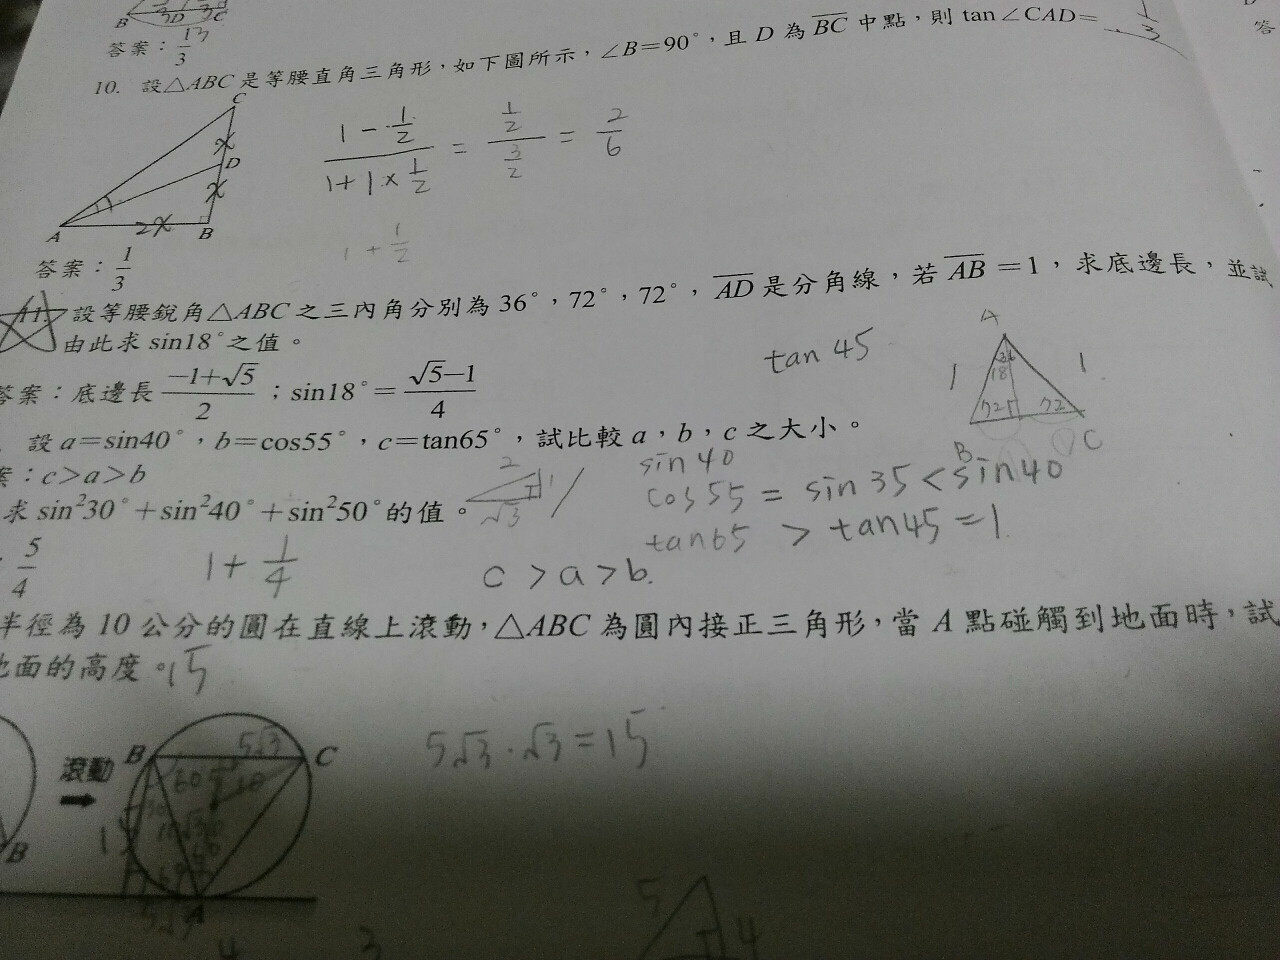 B 3D C
答案：1/3
10. 設△ABC是等腰直角三角形，如下圖所示，∠B=90°，且D為BC中點，則tan∠CAD= 1/3
答
C
x
D
x
A 2x B
(1 - 1/2)/(1+1×1/2) = (1/2)/(3/2) = 2/6
1 + 1/2
答案：1/3
11. 設等腰銳角△ABC之三內角分別為36°，72°，72°，AD是分角線，若AB=1，求底邊長，並試
由此求sin18°之值。
tan 45
A
1 18 1
72 72
B C
答案：底邊長 (-1+√5)/2；sin18°= (√5-1)/4
設a=sin40°，b=cos55°，c=tan65°，試比較a，b，c之大小。
案：c>a>b
2 1
√3
sin 40
cos 55 = sin 35 < sin 40
tan65 > tan45 = 1
c > a > b.
求sin²30°+sin²40°+sin²50°的值。
5/4
1 + 1/4
半徑為10公分的圓在直線上滾動，△ABC為圓內接正三角形，當A點碰觸到地面時，試
地面的高度。15
5√3·√3=15
滾動
B 5√3 C
60 10
15
B
A
5 4
4 3